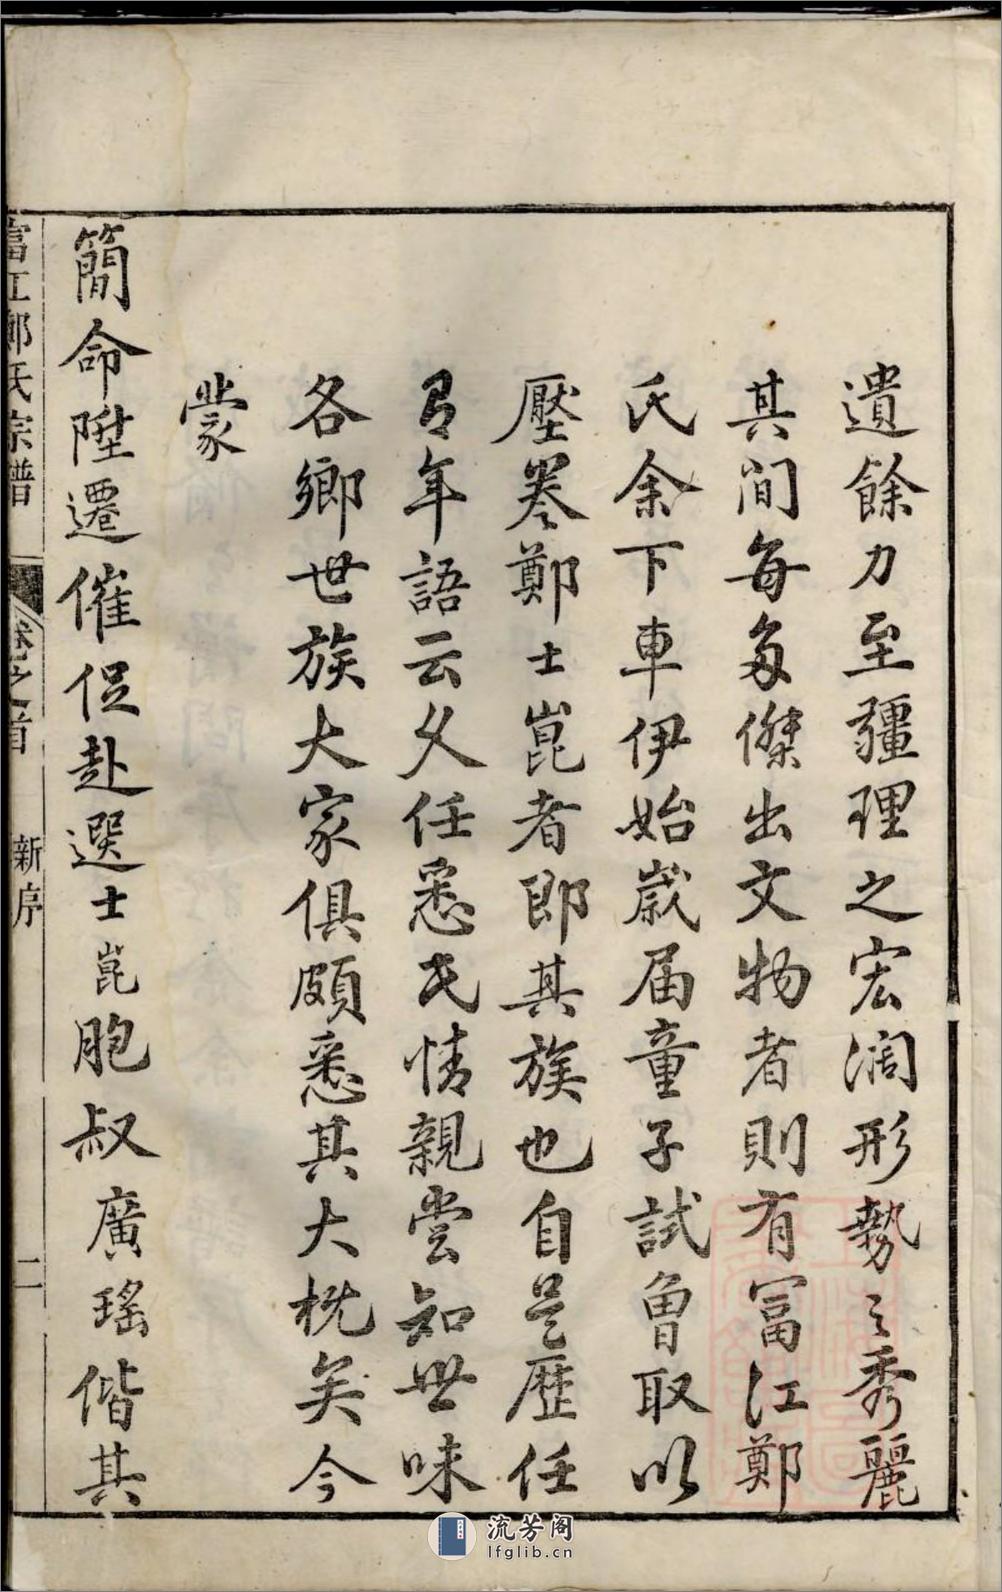 遺餘力至疆理之宏濶形勢之秀麗
其間每多傑出文物者則有冨江鄭
氏余下車伊始歲届童子試曾取以
壓卷鄭士崑者即其族也自是歷任
有年語云久任悉民情親嘗知世味
各鄉世族大家俱頗悉其大槩矣今
蒙
簡命陞遷催促赴選士崑胞叔廣瑤偕其
富江鄭氏宗譜
卷之首
新序
二
流芳阁
lfglib.cn